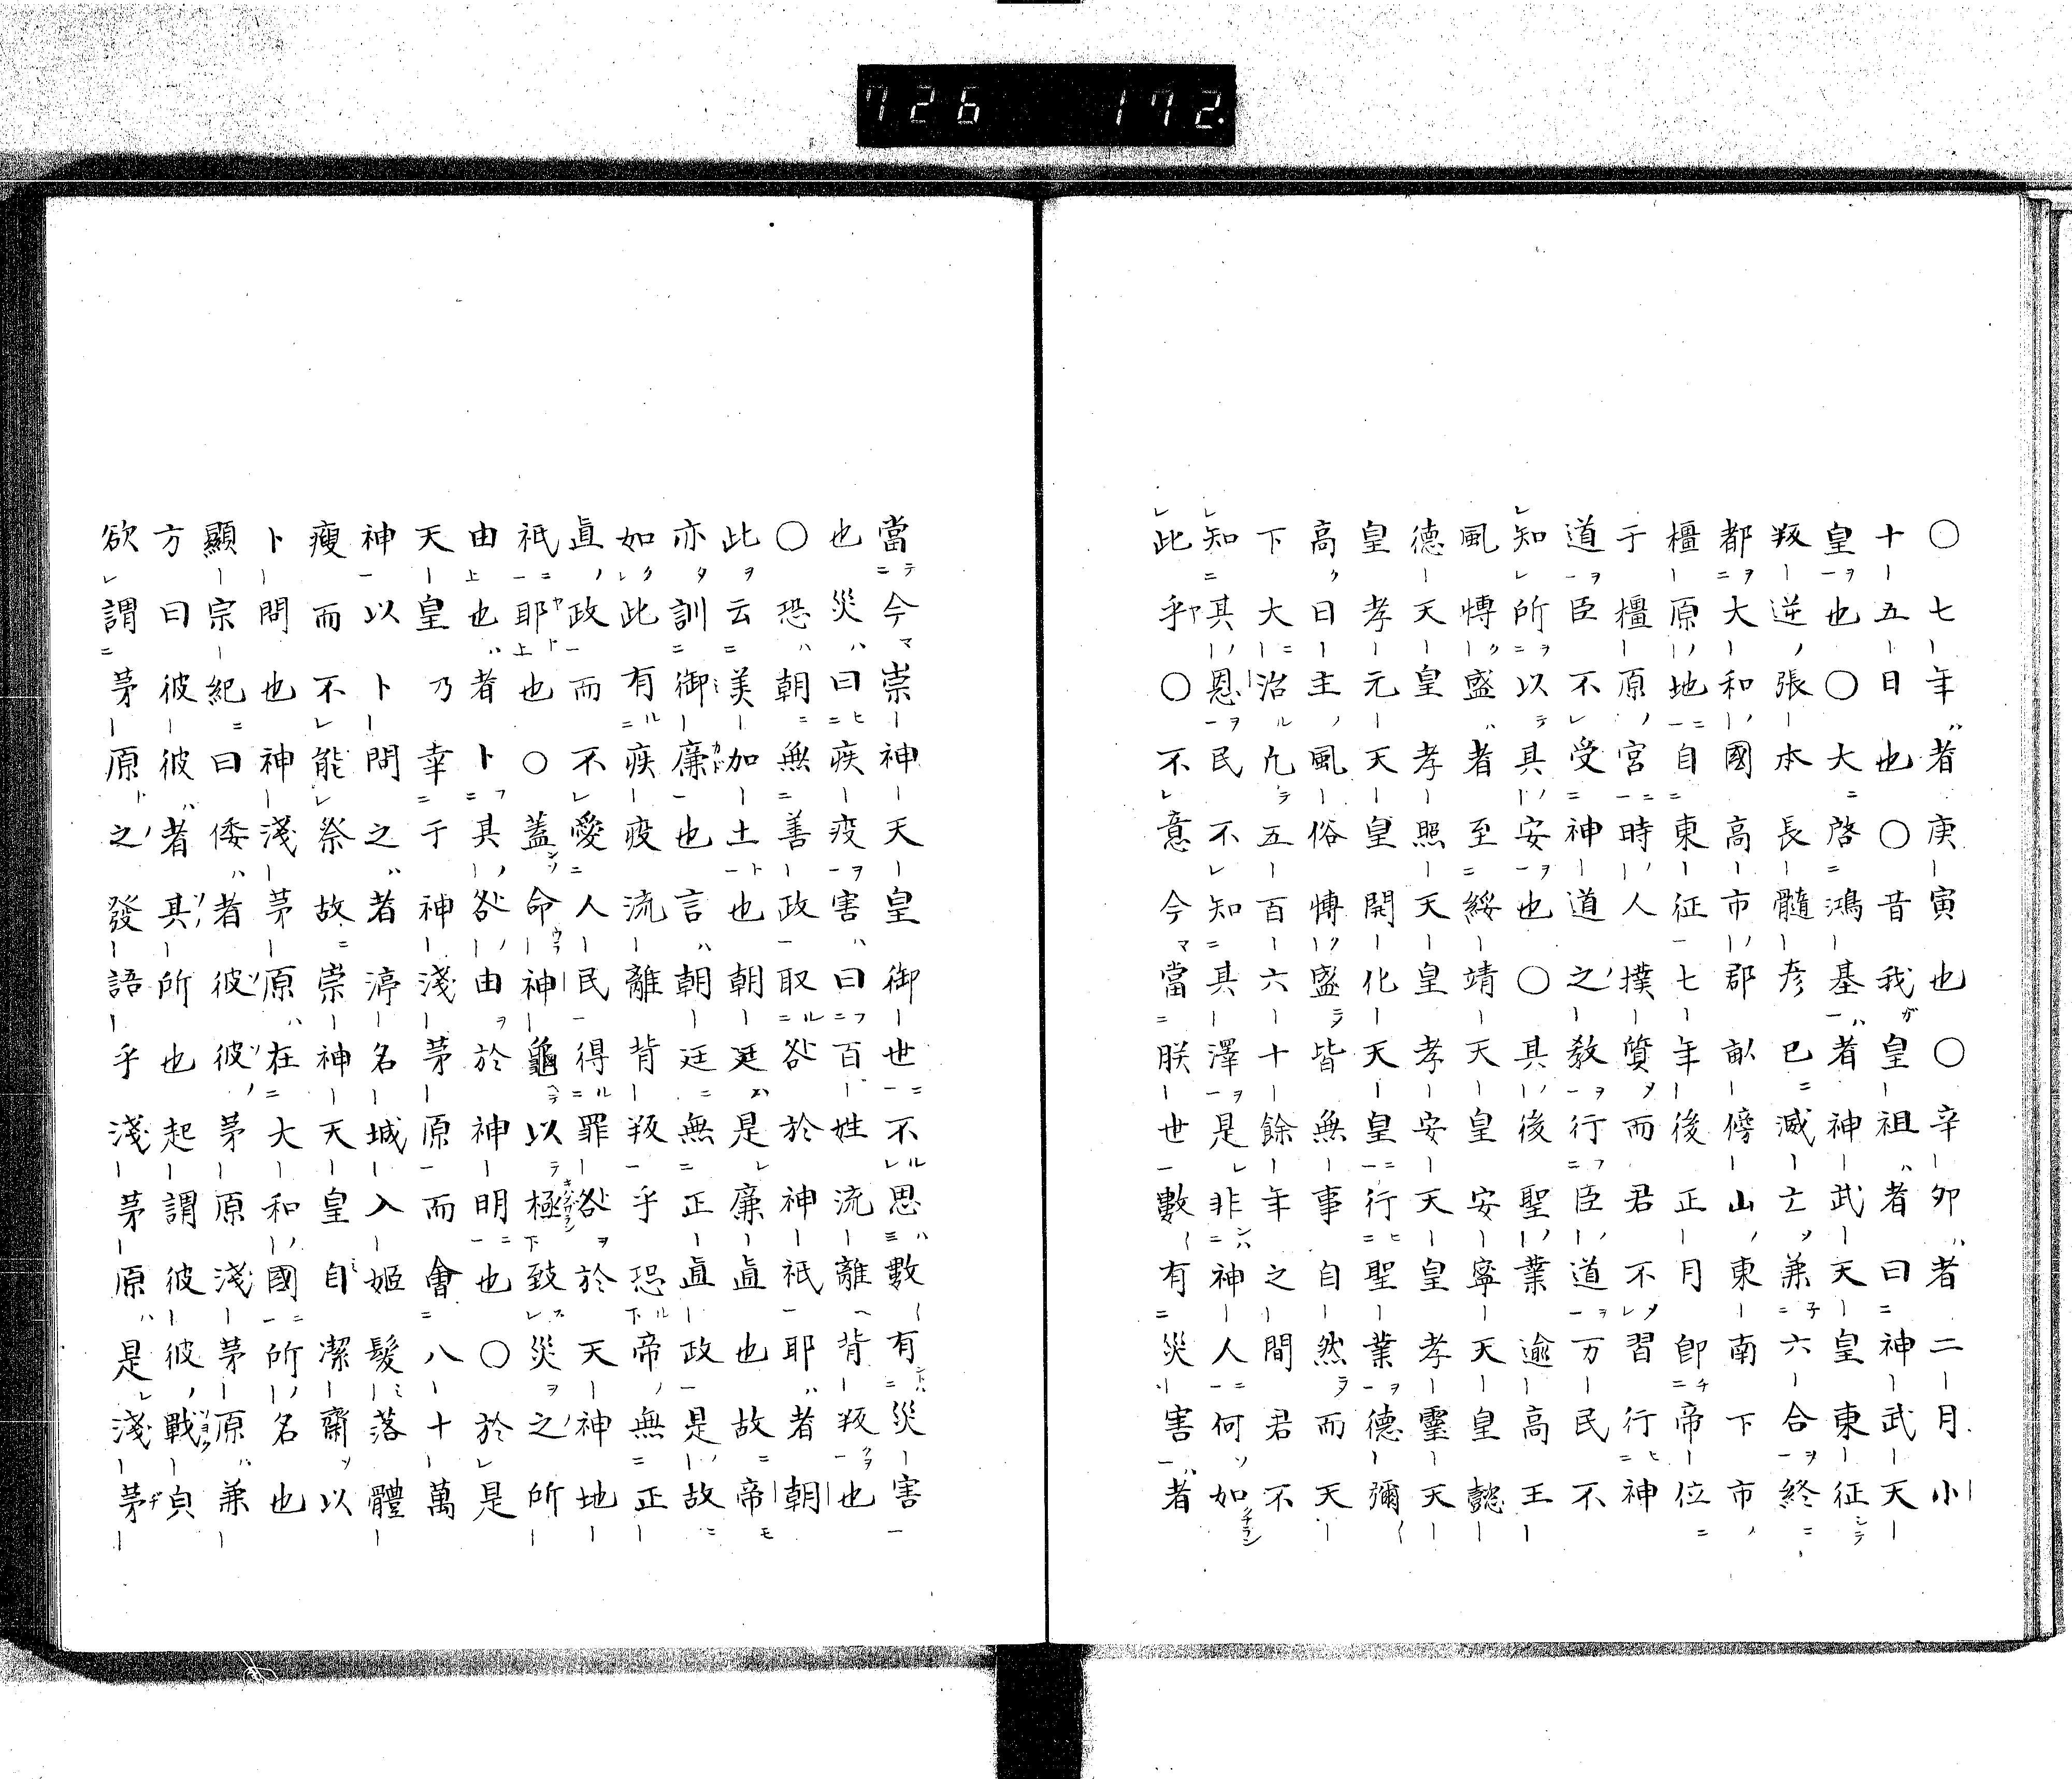 726 172.
○七年者庚寅也○辛卯者二月小
十五日也○昔我皇祖者曰神武天
皇也○大啓鴻基者神武天皇東征
叛逆張本長髓彦已滅亡兼六合終
都大和國高市郡畝傍山東南下市
橿原地自東征七年後正月即帝位
于橿原宮時人撲質而君不習行神
道臣不受神道之教行臣道万民不
知所以其安也○其後聖業逾高王
風愽盛者至綏靖天皇安寧天皇懿
德天皇孝照天皇孝安天皇孝靈天
皇孝元天皇開化天皇行聖業德彌
高曰主風俗愽盛皆無事自然而天
下大治凢五百六十餘年之間君不
知其恩民不知其澤是非神人何如
此乎○不意今當朕世數有災害者
當今崇神天皇御世不思數有災害
也災曰疾疫害曰百姓流離背叛也
○恐朝無善政取咎於神祇耶者朝
此云美加土也朝廷是廉直也故帝
亦訓御廉也言朝廷無正直政是故
如此有疾疫流離背叛乎恐帝無正
直政而不愛人民得罪咎於天神地
祇耶也○蓋命神龜以極致災之所
由也者卜其咎由於神明也○於是
天皇乃幸于神淺茅原而會八十萬
神以卜問之者渟名城入姬髮落體
瘦而不能祭故崇神天皇自潔齋以
卜問也神淺茅原在大和國所名也
顯宗紀曰倭者彼彼茅原淺茅原兼
方曰彼彼者其所也起謂彼彼戰貞
欲謂茅原之發語乎淺茅原是淺茅